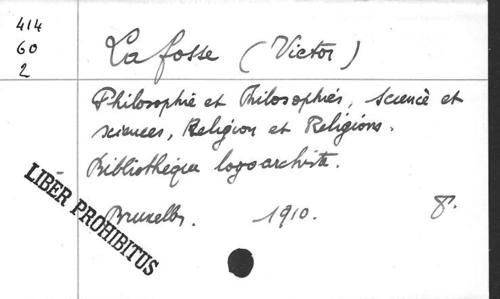 414
60
2
Lafosse (Victor)
Philosophie et Philosophies, Science et
sciences, Religion et Religions.
Bibliothèque logoarchiste.
LIBER PROHIBITUS
Bruxelles. 1910. 8°.